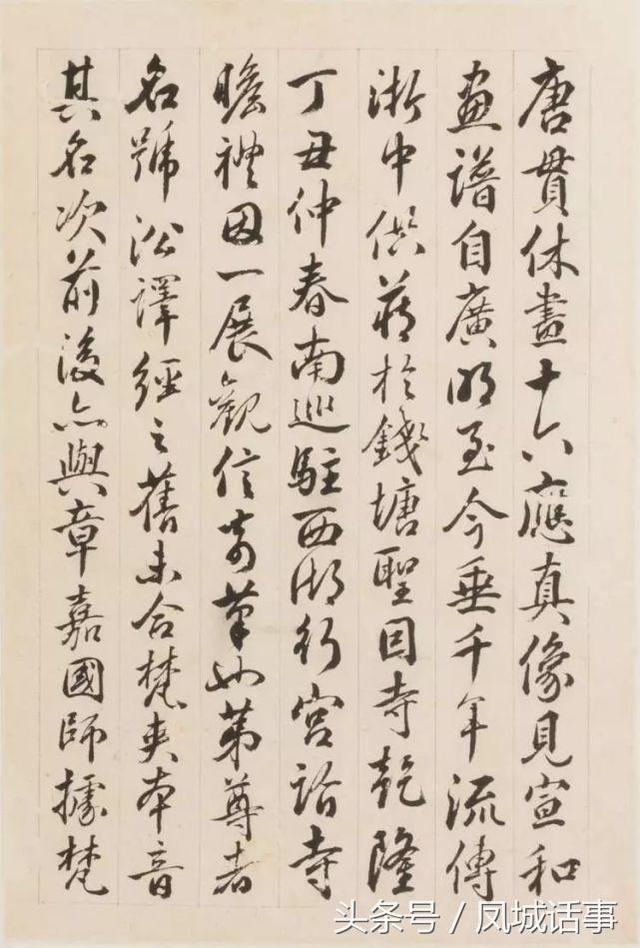 唐貫休畫十六應真像見宣和
畫譜自廣明至今垂千年流傳
浙中供藏於錢塘聖因寺乾隆
丁丑仲春南巡駐西湖行宮詣寺
瞻禮因一展觀信奇筆也第尊者
名號沿譯經之舊未合梵夾本音
其名次前後亦與章嘉國師據梵
头条号 / 凤城话事